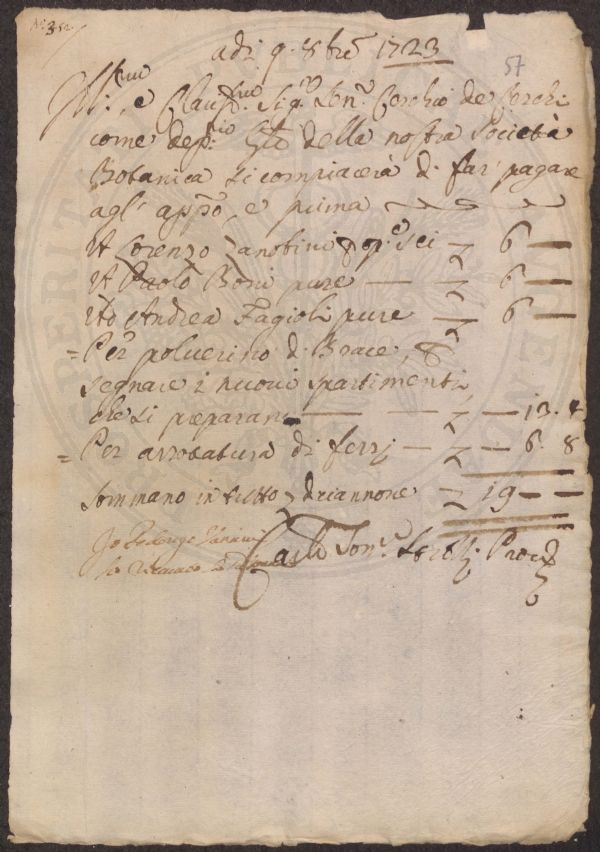 N.° 352
57
adi 9. 8bre 1723
Ill.mo, e Clariss.mo Sig.re Sen.re Cerchio de Cerchi
come dep.rio della nostra Società
Botanica si compiacerà di far' pagare
agl' app.o, e prima
A Lorenzo Zanobini p op.e sei — 6 —
A Paolo Boni pure — 6 —
Ad Andrea Fagioli pure — 6 —
= Per polverino di Brace, p
segnare i nuovi spartimenti,
che si preparano — 13. 4
= Per arrotatura di ferri — 6. 8
Sommano in tutto, diciannove — 19 — —
Io
Io